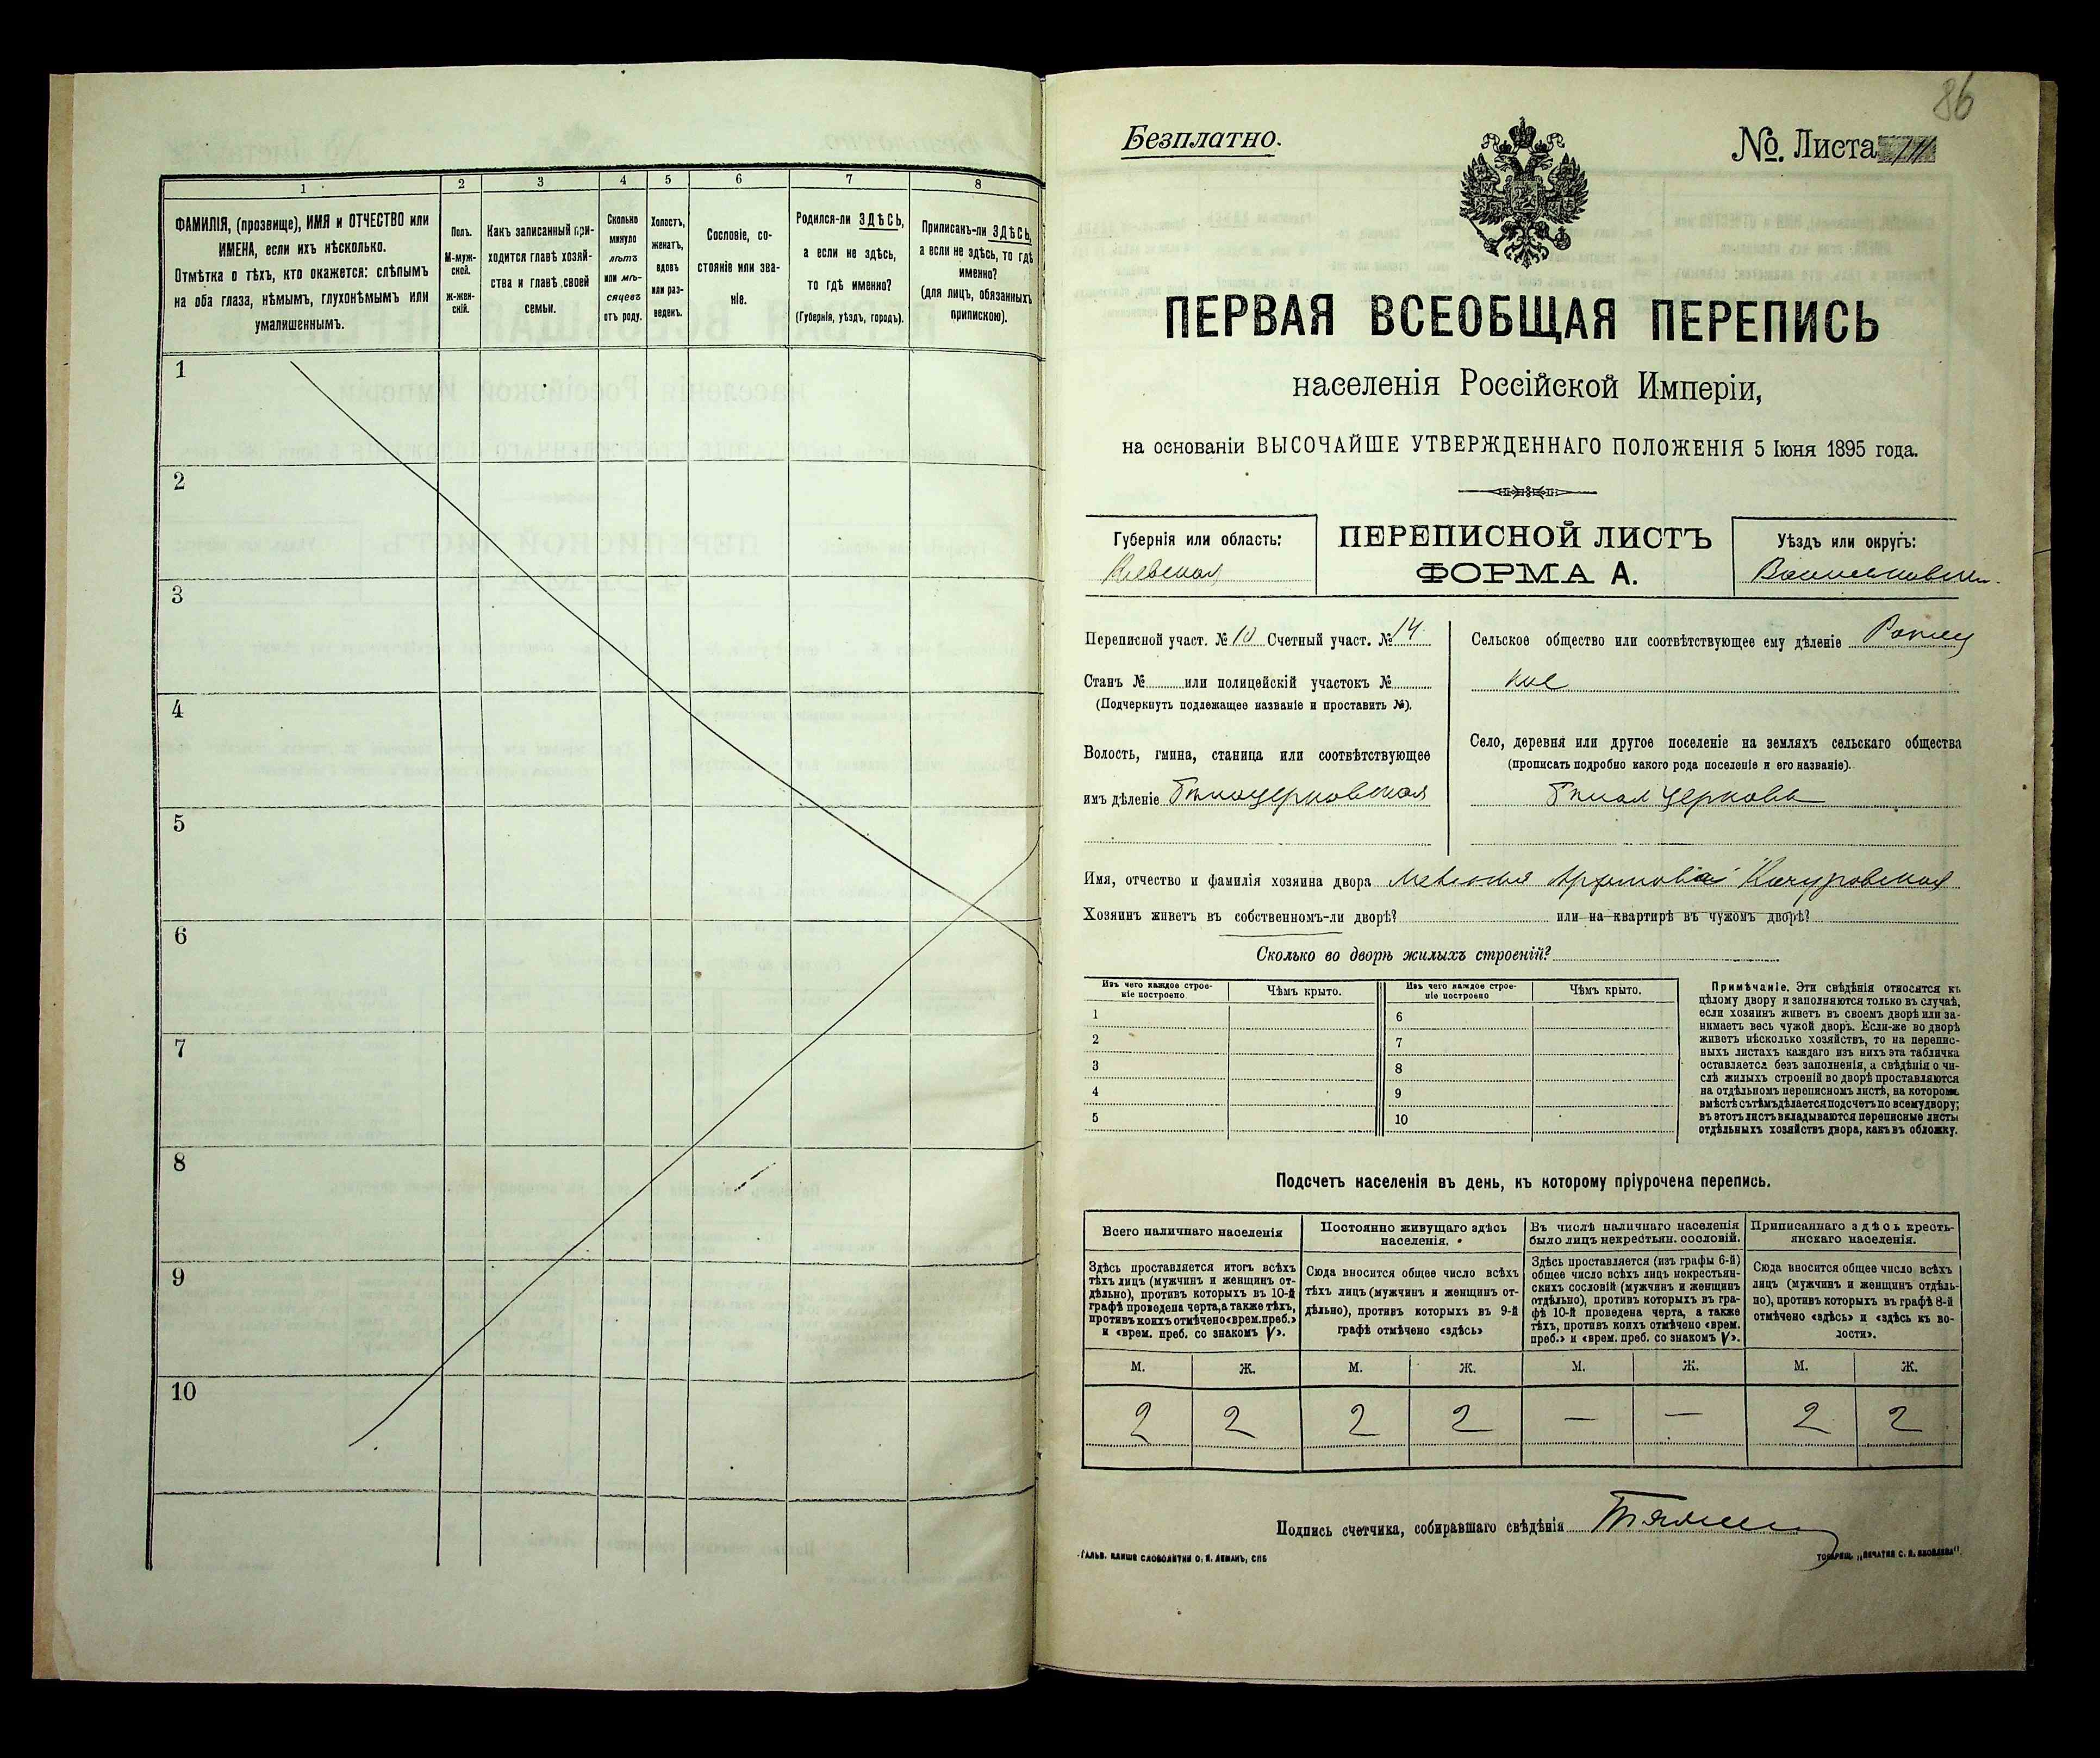 1 2 3 4 5 6 7 8
ФАМИЛІЯ, (прозвище), ИМЯ и ОТЧЕСТВО или
ИМЕНА, если ихъ нѣсколько.
Отмѣтка о тѣхъ, кто окажется: слѣпымъ
на оба глаза, нѣмымъ, глухонѣмымъ или
умалишеннымъ.
Полъ.
М-муж-
ской.
ж-жен-
скій.
Какъ записанный при-
ходится главѣ хозяй-
ства и главѣ своей
семьи.
Сколько
минуло
лѣтъ
или мѣ-
сяцевъ
отъ роду.
Холостъ,
женатъ,
вдовъ
или раз-
веденъ.
Сословіе, со-
стояніе или зва-
ніе.
Родился-ли ЗДѢСЬ,
а если не здѣсь,
то гдѣ именно?
(Губернія, уѣздъ, городъ).
Приписанъ-ли ЗДѢСЬ,
а если не здѣсь, то гдѣ
именно?
(для лицъ, обязанныхъ
припискою).
1
2
3
4
5
6
7
8
9
10
86
Безплатно.
№. Листа
ПЕРВАЯ ВСЕОБЩАЯ ПЕРЕПИСЬ
населенія Россійской Имперіи,
на основаніи ВЫСОЧАЙШЕ УТВЕРЖДЕННАГО ПОЛОЖЕНІЯ 5 Іюня 1895 года.
Губернія или область:
Кіевская
ПЕРЕПИСНОЙ ЛИСТЪ
ФОРМА А.
Уѣздъ или округъ:
Переписной участ. № 10 Счетный участ. № 14.
Станъ № или полицейскій участокъ №
(Подчеркнуть подлежащее названіе и проставить №).
Волость, гмина, станица или соотвѣтствующее
имъ дѣленіе Бѣлоцерковская
Сельское общество или соотвѣтствующее ему дѣленіе
кое
Село, деревня или другое поселеніе на земляхъ сельскаго общества
(прописать подробно какого рода поселеніе и его названіе).
Бѣлая Церковь
Имя, отчество и фамилія хозяина двора Качуровская
Хозяинъ живетъ въ собственномъ-ли дворѣ? или на квартирѣ въ чужомъ дворѣ?
Сколько во дворѣ жилыхъ строеній?
Изъ чего каждое строе-
ніе построено
Чѣмъ крыто.
Изъ чего каждое строе-
ніе построено
Чѣмъ крыто.
1 6
2 7
3 8
4 9
5 10
Примѣчаніе. Эти свѣдѣнія относятся къ
цѣлому двору и заполняются только въ случаѣ,
если хозяинъ живетъ въ своемъ дворѣ или за-
нимаетъ весь чужой дворъ. Если-же во дворѣ
живетъ нѣсколько хозяйствъ, то на перепис-
ныхъ листахъ каждаго изъ нихъ эта табличка
оставляется безъ заполненія, а свѣдѣнія о чи-
слѣ жилыхъ строеній во дворѣ проставляются
на отдѣльномъ переписномъ листѣ, на которомъ
вмѣстѣ съ тѣмъ дѣлается подсчетъ по всему двору;
въ этотъ листъ вкладываются переписные листы
отдѣльныхъ хозяйствъ двора, какъ въ обложку.
Подсчетъ населенія въ день, къ которому пріурочена перепись.
Всего наличнаго населенія
Постоянно живущаго здѣсь
населенія.
Въ числѣ наличнаго населенія
было лицъ некрестьян. сословій.
Приписаннаго здѣсь кресть-
янскаго населенія.
Здѣсь проставляется итогъ всѣхъ
тѣхъ лицъ (мужчинъ и женщинъ от-
дѣльно), противъ которыхъ въ 10-й
графѣ проведена черта, а также тѣхъ,
противъ коихъ отмѣчено «врем. преб.»
и «врем. преб. со знакомъ V».
Сюда вносится общее число всѣхъ
тѣхъ лицъ (мужчинъ и женщинъ от-
дѣльно), противъ которыхъ въ 9-й
графѣ отмѣчено «здѣсь»
Здѣсь проставляется (изъ графы 6-й)
общее число всѣхъ лицъ некрестьян-
скихъ сословій (мужчинъ и женщинъ
отдѣльно), противъ которыхъ въ гра-
фѣ 10-й проведена черта, а также
тѣхъ, противъ коихъ отмѣчено «врем.
преб.» и «врем. преб. со знакомъ V».
Сюда вносится общее число всѣхъ
лицъ (мужчинъ и женщинъ отдѣль-
но), противъ которыхъ въ графѣ 8-й
отмѣчено «здѣсь» и «здѣсь къ во-
лости».
М. Ж. М. Ж. М. Ж. М. Ж.
2 2 2 2 — — 2 2
Подпись счетчика, собиравшаго свѣдѣнія
ГАЛЬВ. КЛИШЕ СЛОВОЛИТНИ О. И. ЛЕМАНЪ, СПБ
ТОВАРИЩ. „ПЕЧАТНЯ С. П. ЯКОВЛЕВА".